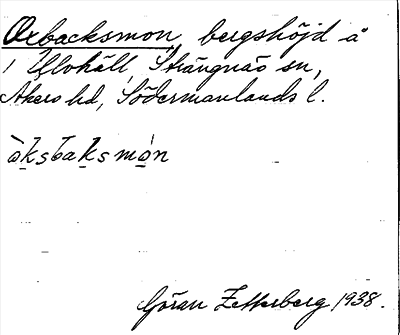 Oxbacksmon, bergshöjd å
1 Ulvhäll, Strängnäs sn,
Åkers hd, Södermanlands l.
òksbaksmón
Göran Zetterberg 1938.